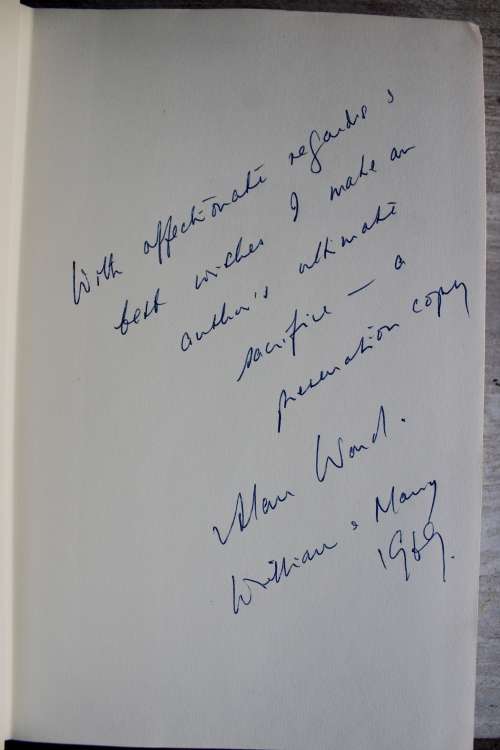 With affectionate regards &
best wishes I make an
author's ultimate
sacrifice — a
presentation copy
Alan Ward.
William & Mary
1969.